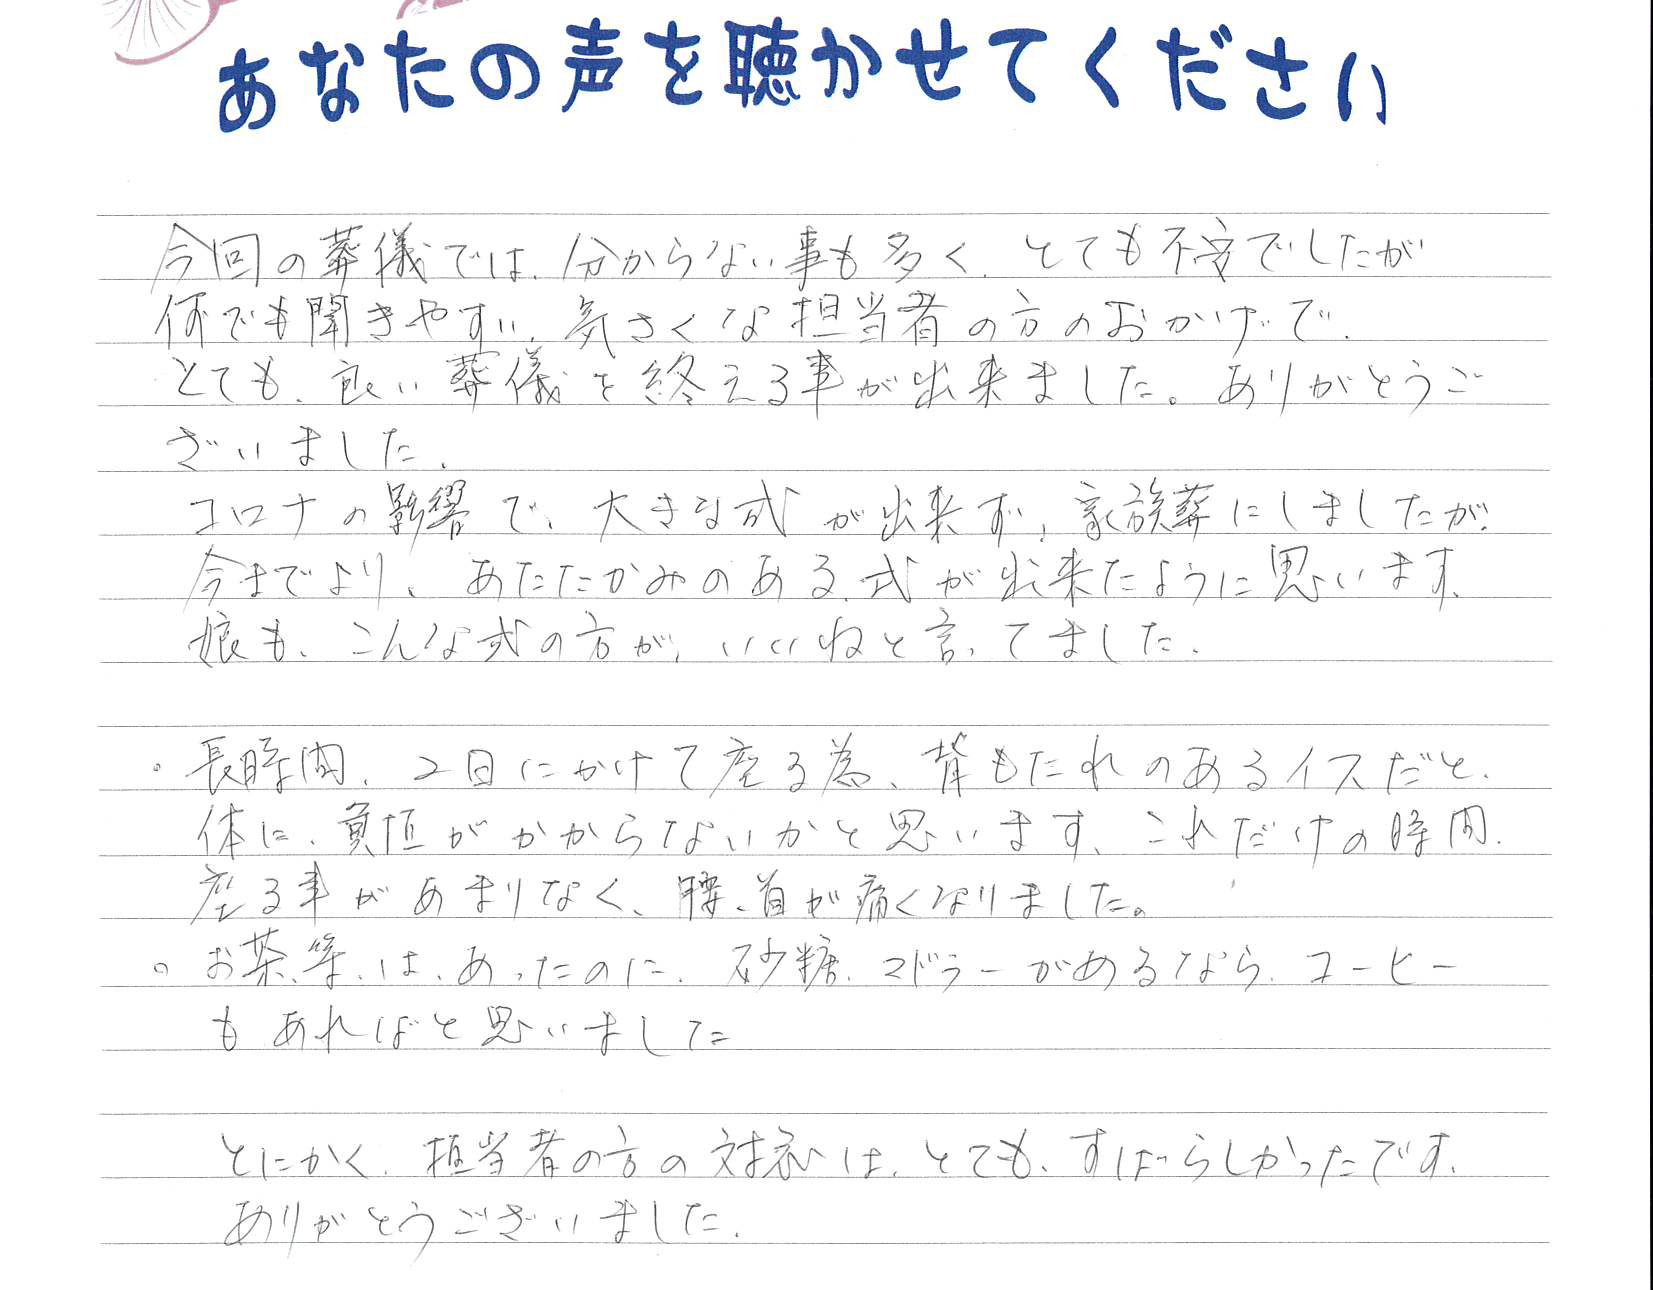 あなたの声を聴かせてください
今回の葬儀では、分からない事も多く、とても不安でしたが
何でも聞きやすい、気さくな担当者の方のおかげで、
とても、良い葬儀を終える事が出来ました。ありがとうご
ざいました、
コロナの影響で、大きな式が出来ず、家族葬にしましたが、
今までより、あたたかみのある式が出来たように思います、
娘も、こんな式の方が、いいねと言ってました、
・長時間、2日にかけて座る為、背もたれのあるイスだと、
体に、負担がかからないかと思います、これだけの時間、
座る事があまりなく、腰、首が痛くなりました。
・お茶、等、は、あったのに、砂糖、マドラーがあるなら、コーヒー
もあればと思いました
とにかく、担当者の方の対応は、とても、すばらしかったです、
ありがとうございました、